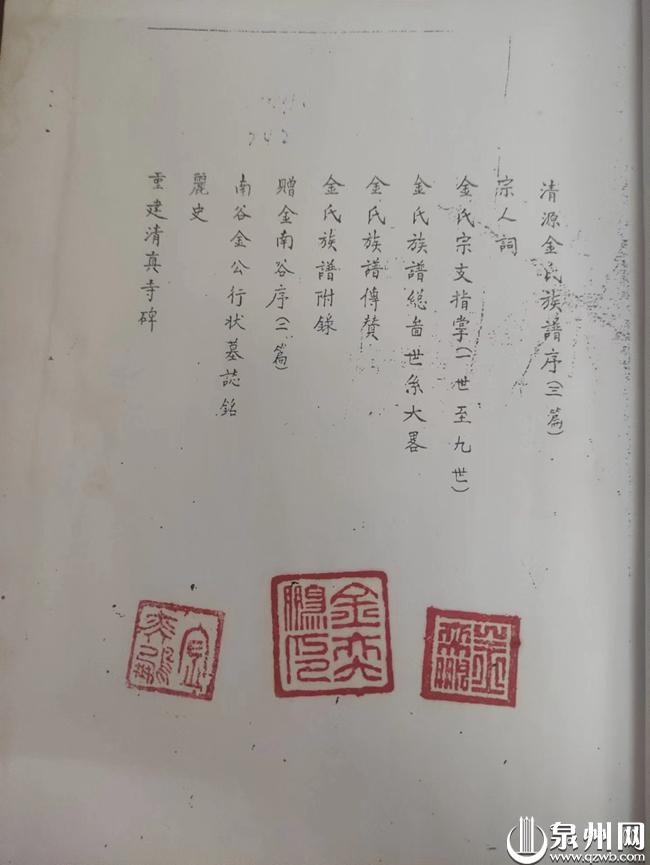 清源金氏族譜序(三篇)
宗人詞
金氏宗支指掌(一世至九世)
金氏族譜總啚世系大畧
金氏族譜傳贊
金氏族譜附錄
贈金南谷序(二篇)
南谷金公行状墓誌銘
麗史
重建清真寺碑
金奕鵬印
泉州网
www.qzwb.com